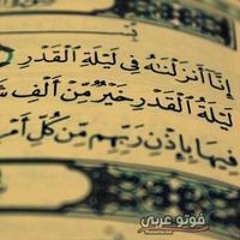 إِنَّا أَنزَلْنَٰهُ فِي لَيْلَةِ ٱلْقَدْرِ
لَيْلَةُ ٱلْقَدْرِ خَيْرٌ مِّنْ أَلْفِ
فِيهَا بِإِذْنِ رَبِّهِم مِّن كُلِّ
فوتو عربي